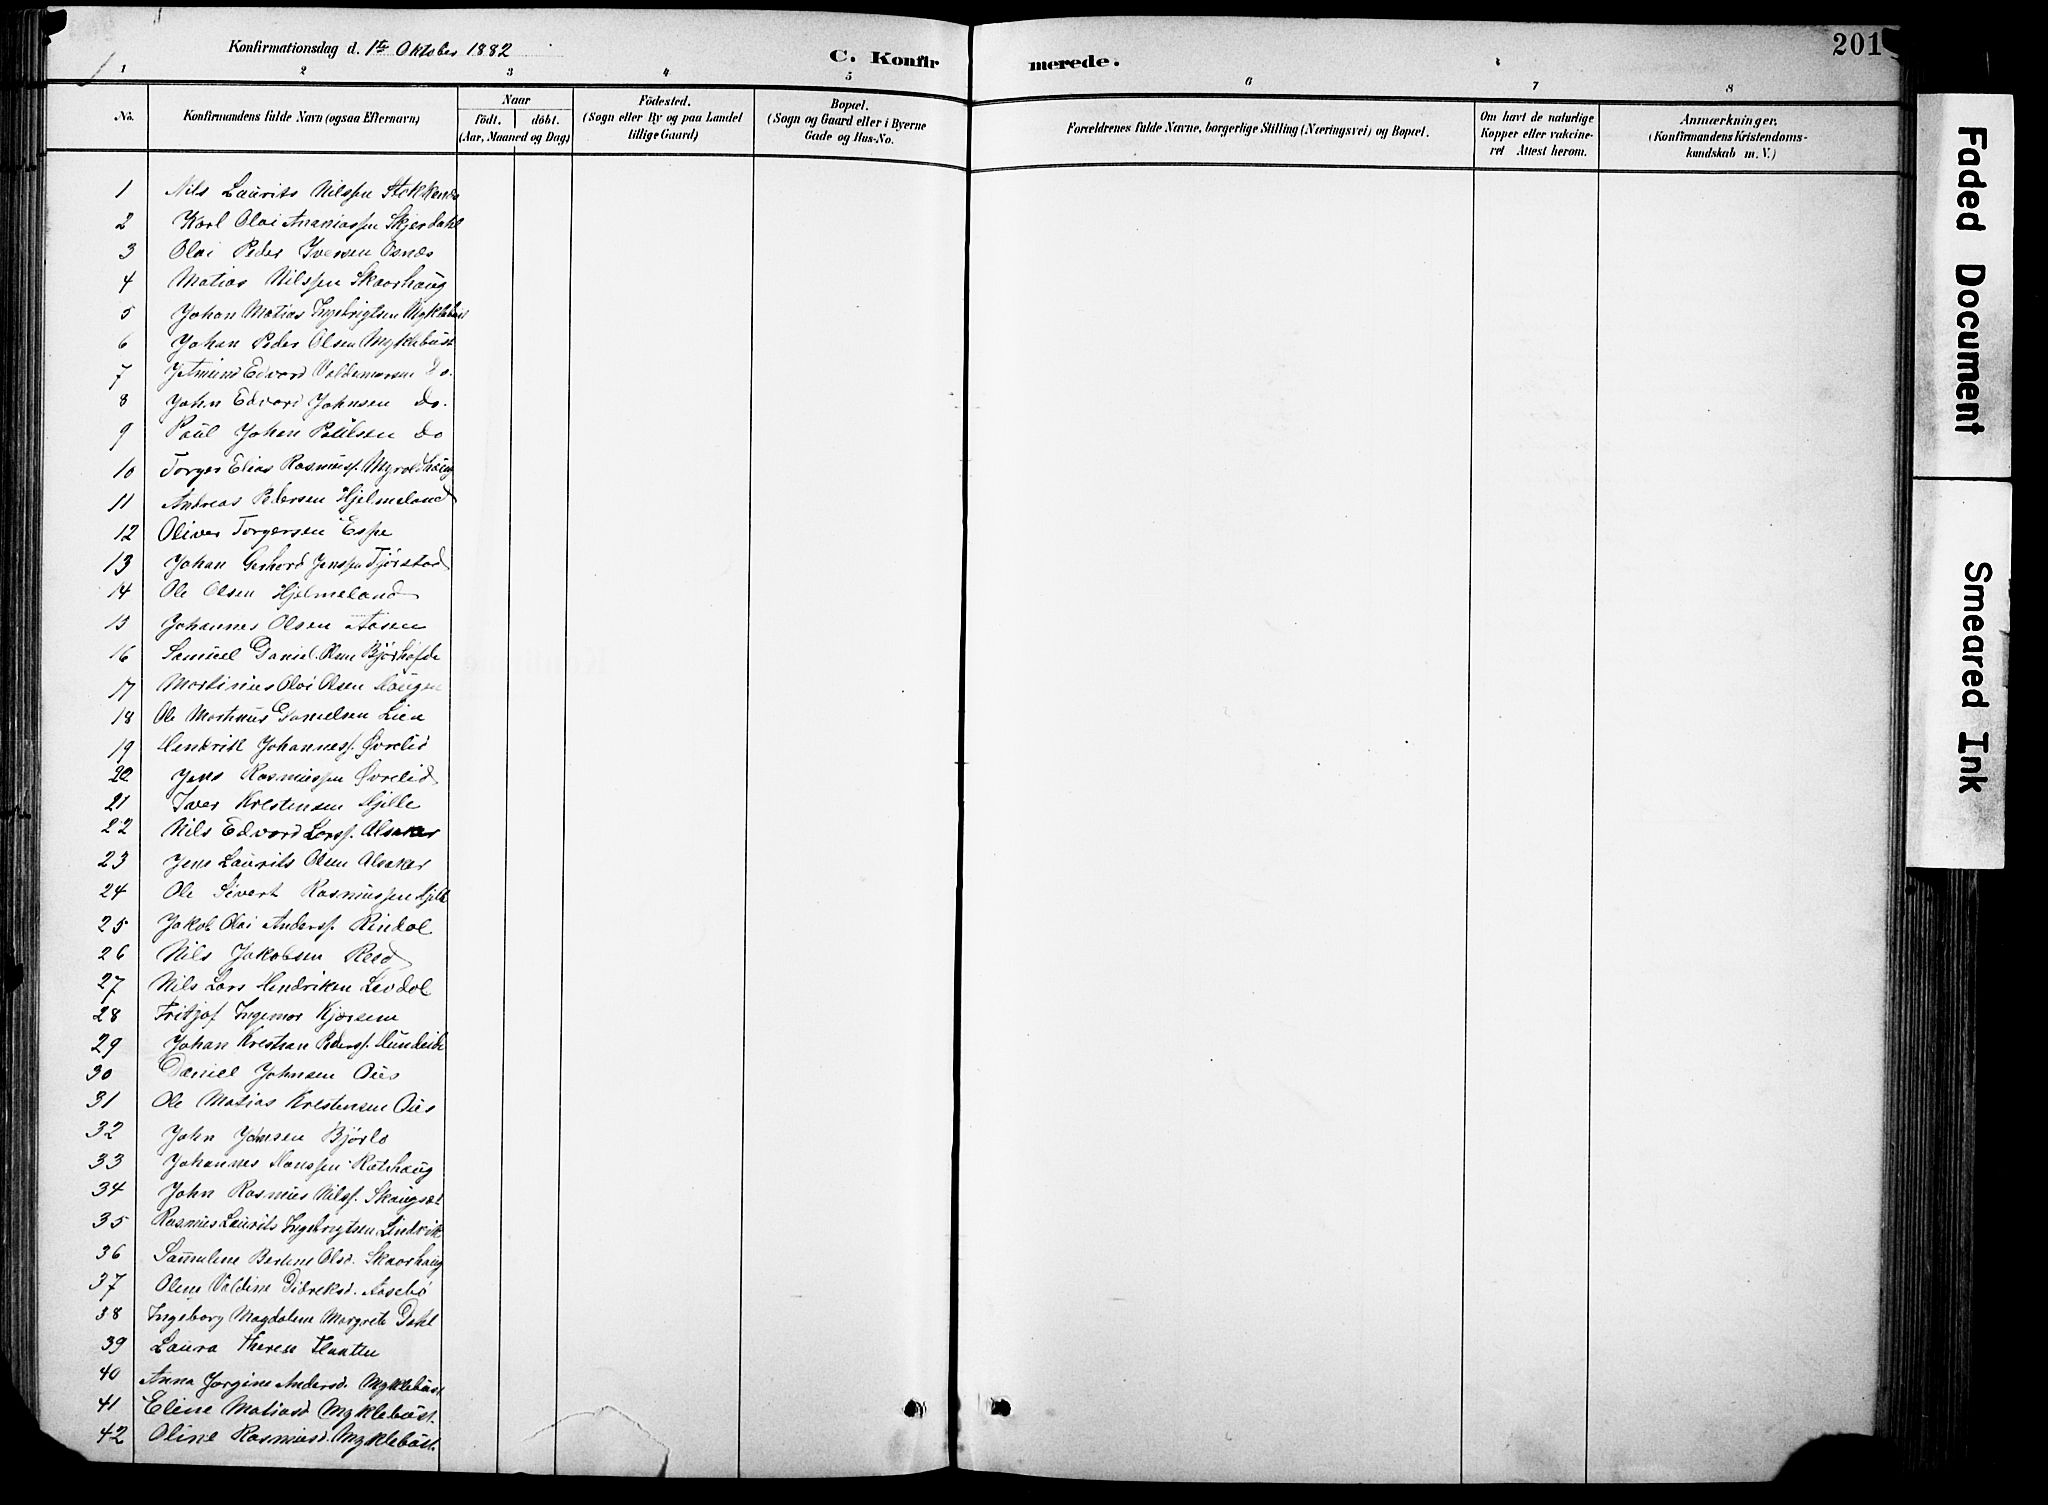 Konfirmationsdag d. 1ste Oktober 1882
C. Konfirmerede.
201
1 2 3 4 5 6 7 8
No.
Konfirmandens fulde Navn (ogsaa Efternavn)
Naar
födt. döbt.
(Aar, Maaned og Dag)
Födested.
(Sogn eller By og paa Landet
tillige Gaard)
Bopæl.
(Sogn og Gaard eller i Byerne
Gade og Hus-No.
Forældrenes fulde Navne, borgerlige Stilling (Næringsvei) og Bopæl.
Om havt de naturlige
Kopper eller vakcine-
ret Attest herom.
Anmærkninger,
(Konfirmandens Kristendoms-
kundskab m. V.)
1 Nils Laurits Nilssen Stokkenes
2 Karl Olai Ananiassen Skjerdahl
3 Olai Peder Iversen Osnes
4 Matias Nilssen Skaorhaug
5 Johan Matias Ingebrigtsen Myklebust
6 Johan Peder Olsen Myklebust
7 Edvard Valdemarsen Do.
8 John Edvard Johnsen Do.
9 Paul Johan Paulsen Do
10 Torger Elias Rasmuss. Myroldhaug
11 Andreas Petersen Hjelmeland
12 Oliver Torgersen Espe
13 Johan Gerhard Jenssen Tjørstad
14 Ole Olsen Hjelmeland
15 Johannes Olsen Aasen
16 Samuel Daniel Olsen Bjørhofde
17 Martinus Olai Olsen Haugen
18 Ole Martinus Danielsen Lien
19 Hendrik Johanness. Øvrelid
20 Jens Rasmussen Øvrelid
21 Iver Krestensen Hjelle
22 Nils Edvard Larss. Alsaker
23 Jens Laurits Olsen Alsaker
24 Ole Sivert Rasmussen Hjelle
25 Jakob Olai Anderss. Rindal
26 Nils Jakobsen Reed
27 Nils Lars Hendriksen Levdal
28 Fritjof Ingemar Kjærsene
29 Johan Krestian Pederss. Hundeide
30 Daniel Johnsen Øus
31 Ole Matias Krestensen Øus
32 John Jonsen Bjørlo
33 Johannes Hanssen Rotihaug
34 John Rasmus Nilss. Skaugsæt
35 Rasmus Laurits Ingebrigtsen Lindvik
36 Samuline Bertine Olsd. Skaorhaug
37 Oline Valdine Didreksd. Aasebø
38 Ingeborg Magdalene Margrete Dahl
39 Laura Therese Flaaten
40 Anna Jørgine Andersd. Myklebust
41 Eline Matiasd Myklebust.
42 Oline Rasmusd. Myklebust.
Faded Document
Smeared Ink